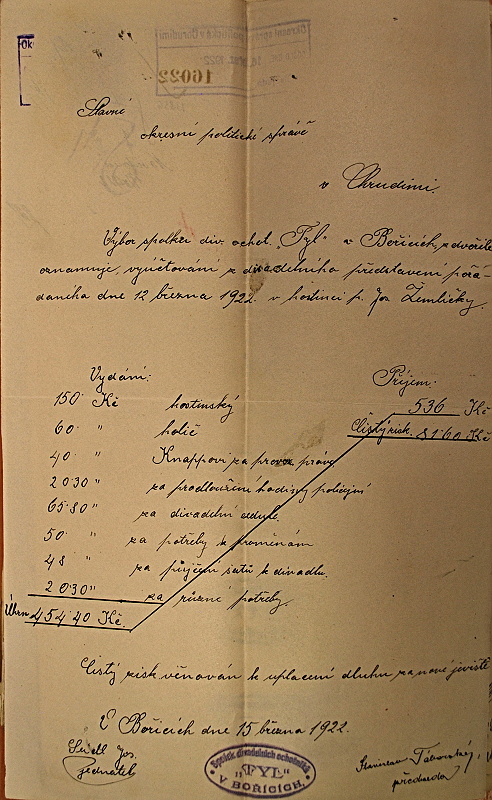 Ok
16022
Slavné
okresní politické správě
v Chrudimi.
Výbor spolku div. ochot. „Tyl" v Bořicích, zdvořile
oznamuje, vyúčtování z divadelního představení pořá-
daného dne 12 března 1922. v hostinci p. Jos Žemličky.
Vydání: Příjem:
150 Kč hostinský 536 Kč
60 " holič Čistý zisk. 81'60 Kč
40 " Knappovi za provoz. právo
20'30 " za prodloužení hodiny policejní
65'80 " za divadelní cedule.
50 " za potřeby k proměnám
48 " za půjčení šatů k divadlu.
20'30 " za různé potřeby.
Úhrn 454'40 Kč.
Čistý zisk věnován k uplacení dluhu za nové jeviště
V Bořicích dne 15 března 1922.
Jos.
jednatel
Spolek divadelních ochotníků
„TYL"
V BOŘICÍCH.
Stanislav
předseda